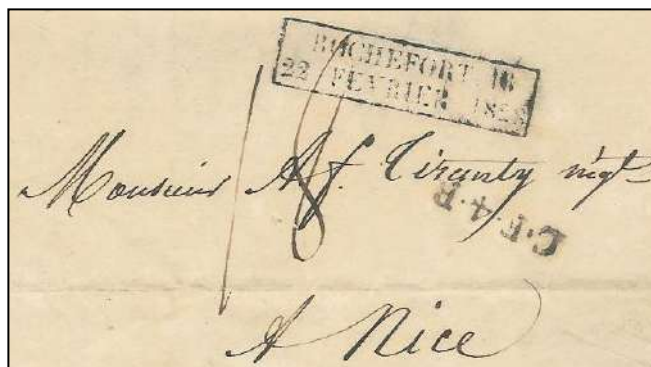 ROCHEFORT 16
22 FEVRIER 182
18
Monsieur Af. Tiranty nég.t
C.F.4.R.
A Nice